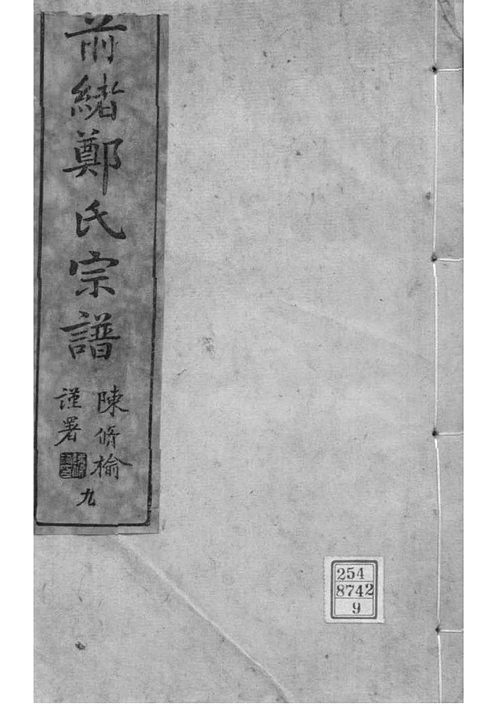 前緒鄭氏宗譜
陳脩榆
謹署
九
254
8742
9